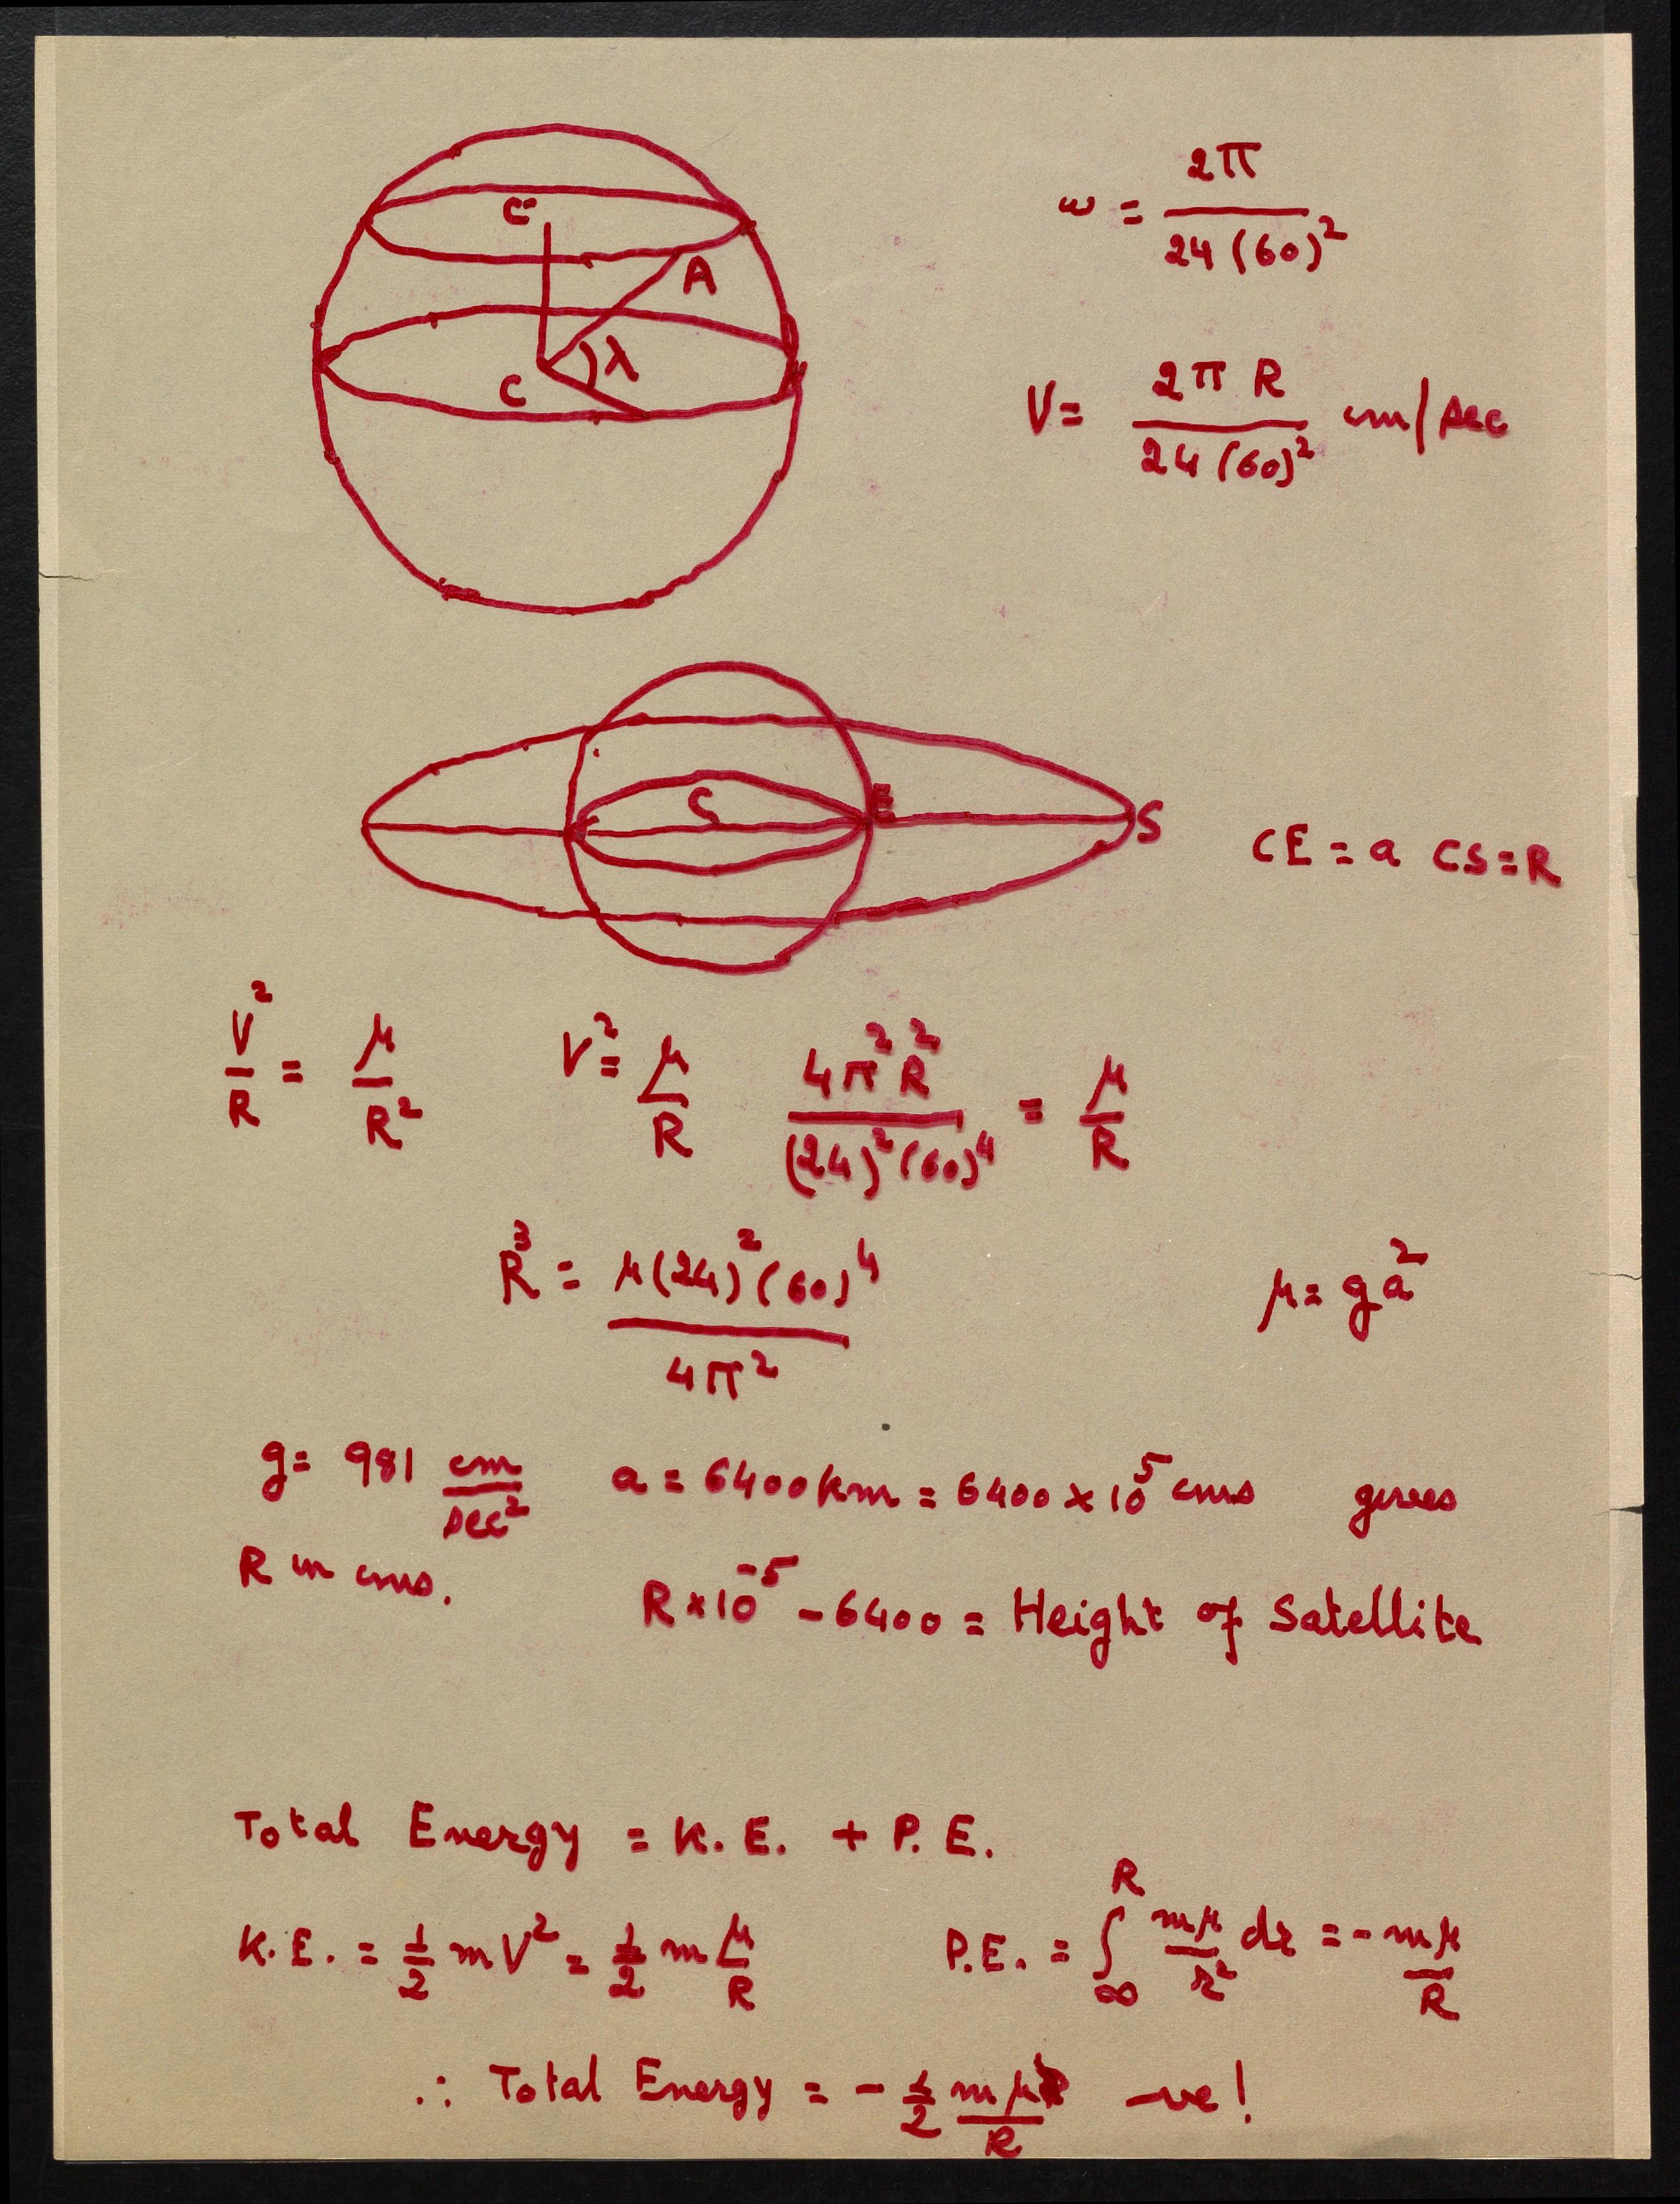 C'
A
λ
C
ω = 2π / 24 (60)²
V = 2π R / 24 (60)² cm/sec
C E S
CE = a CS = R
V²/R = μ/R² V² = μ/R 4π²R² / (24)²(60)⁴ = μ/R
R³ = μ(24)²(60)⁴ / 4π² μ = ga²
g = 981 cm/sec² a = 6400 km = 6400 × 10⁵ cms gives
R in cms. R × 10⁻⁵ – 6400 = Height of Satellite
Total Energy = K.E. + P.E.
K.E. = 1/2 mV² = 1/2 m μ/R P.E. = ∫∞^R mμ/r² dr = - mμ/R
∴ Total Energy = - 1/2 mμ/R -ve!